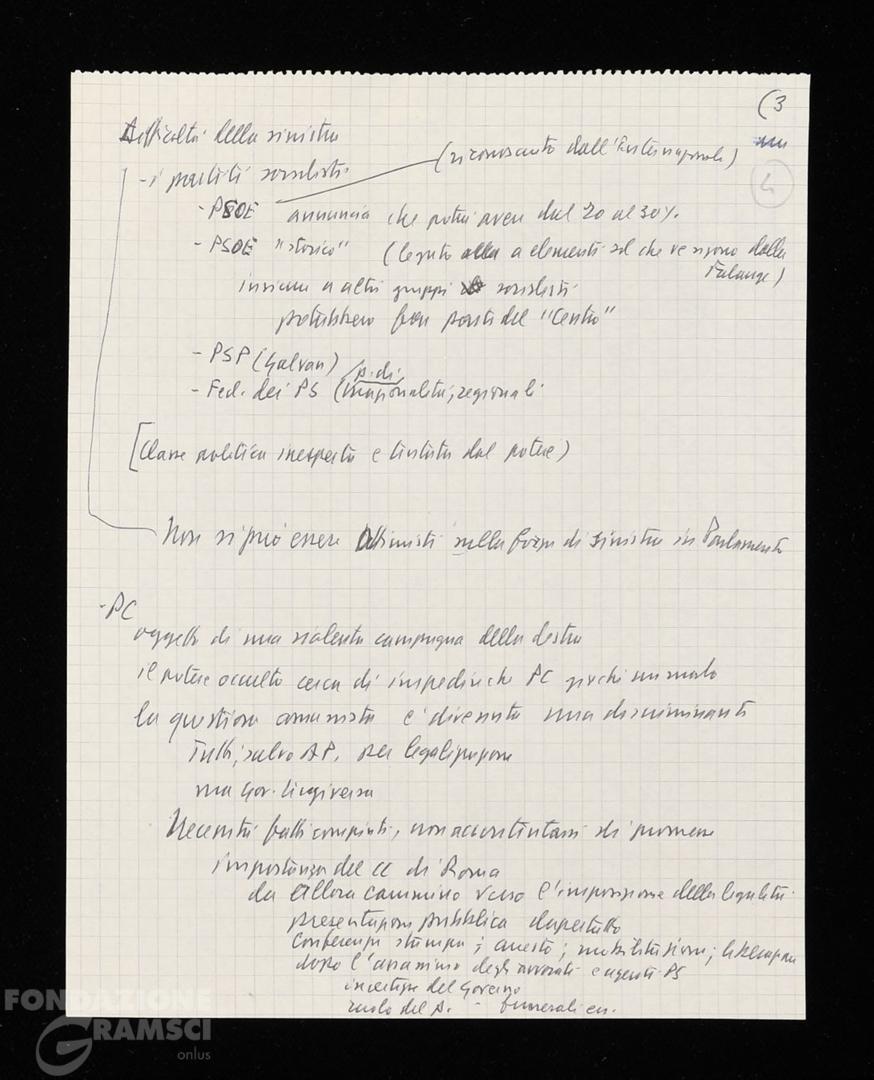 (3
4
Difficoltà della sinistra
- i partiti socialisti
(riconosciuto dall'Internazionale)
- PSOE annuncia che potrà avere dal 20 al 30%.
- PSOE "storico" (legato a elementi del che vengono dalla Falange)
insieme a altri gruppi socialisti
potrebbero far parte del "Centro"
- PSP (Galvan)
p. di
- Fed. dei PS (nazionalità, regionali
[Classe politica inesperta e tentata dal potere)
Non si può essere ottimisti sulla forza di sinistra in Parlamento
- PC
oggetto di una violenta campagna della destra
il potere occulto cerca di impedire che PC giochi un ruolo
la questione comunista è divenuta una discriminante
Tutti, salvo AP, per legalizzazione
ma Gov. tergiversa
Necessità fatti compiuti, non accontentarsi di promesse
importanza del CC di Roma
da allora cammino verso l'imposizione della legalità
presentazione pubblica dappertutto
conferenza stampa; arresto; mobilitazione; liberazione
dopo l'assassinio degli avvocati e agenti PS
incertezze del Governo
ruolo del - funerali
FONDAZIONE
GRAMSCI
onlus